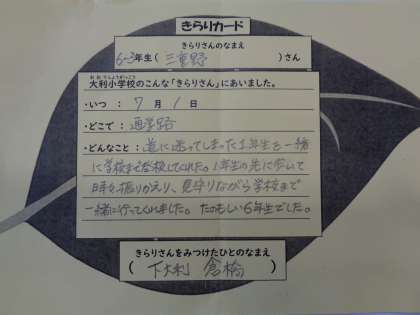 きらりカード
きらりさんのなまえ
6-3年生(三重野)さん
おおりしょうがっこう
大利小学校のこんな「きらりさん」にあいました。
・いつ : 7月1日
・どこで : 通学路
・どんなこと : 道に迷ってしまった1年生を一緒
に学校まで登校してくれた。1年生の先に歩いて
時々振りかえり、見守りながら学校まで
一緒に行ってくれました。たのもしい6年生でした。
きらりさんをみつけたひとのなまえ
(下大利 倉橋)